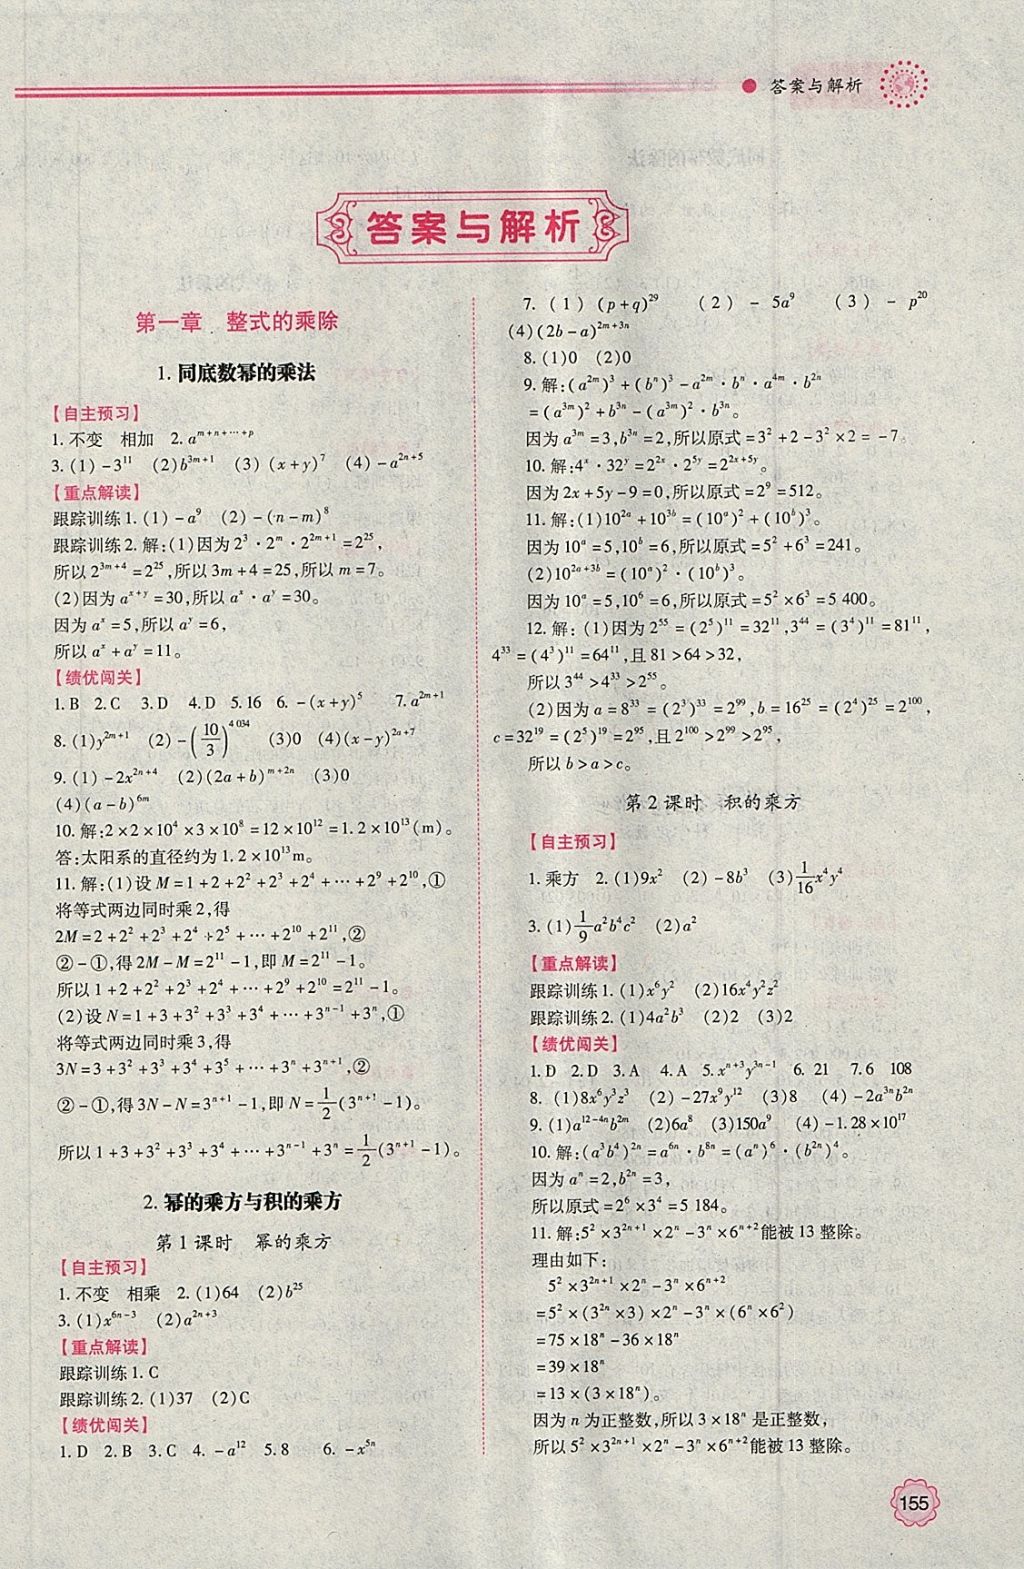 答案与解析
答案与解析
第一章 整式的乘除
1. 同底数幂的乘法
【自主预习】
1. 不变 相加 2. a^{m+n+⋯+p}
3. (1) -3^{11} (2) b^{3m+1} (3) (x+y)^7 (4) -a^{2n+5}
【重点解读】
跟踪训练1. (1) -a^9 (2) -(n-m)^8
跟踪训练2. 解:(1)因为2^3·2^m·2^{2m+1}=2^{25},
所以2^{3m+4}=2^{25},所以3m+4=25,所以m=7。
(2)因为a^{x+y}=30,所以a^x·a^y=30。
因为a^x=5,所以a^y=6,
所以a^x+a^y=11。
【绩优闯关】
1. B 2. C 3. D 4. D 5. 16 6. -(x+y)^5 7. a^{2m+1}
8. (1)y^{2m+1} (2)-(10/3)^{4 034} (3)0 (4)(x-y)^{2a+7}
9. (1)-2x^{2n+4} (2)(2a+b)^{m+2n} (3)0
(4)(a-b)^{6m}
10. 解:2×2×10^4×3×10^8=12×10^{12}=1.2×10^{13}(m)。
答:太阳系的直径约为1.2×10^{13}m。
11. 解:(1)设M=1+2+2^2+2^3+2^4+⋯+2^9+2^{10},①
将等式两边同时乘2,得
2M=2+2^2+2^3+2^4+2^5+⋯+2^{10}+2^{11},②
②-①,得2M-M=2^{11}-1,即M=2^{11}-1。
所以1+2+2^2+2^3+2^4+⋯+2^9+2^{10}=2^{11}-1。
(2)设N=1+3+3^2+3^3+3^4+⋯+3^{n-1}+3^n,①
将等式两边同时乘3,得
3N=3+3^2+3^3+3^4+3^5+⋯+3^n+3^{n+1},②
②-①,得3N-N=3^{n+1}-1,即N=1/2(3^{n+1}-1)。
所以1+3+3^2+3^3+3^4+⋯+3^{n-1}+3^n=1/2(3^{n+1}-1)。
2. 幂的乘方与积的乘方
第1课时 幂的乘方
【自主预习】
1. 不变 相乘 2. (1)64 (2)b^{25}
3. (1)x^{6n-3} (2)a^{2n+3}
【重点解读】
跟踪训练1. C
跟踪训练2. (1)37 (2)C
【绩优闯关】
1. D 2. B 3. C 4. -a^{12} 5. 8 6. -x^{5n}
7. (1) (p+q)^{29} (2) -5a^9 (3) -p^{20}
(4)(2b-a)^{2m+3n}
8. (1)0 (2)0
9. 解:(a^{2m})^3+(b^n)^3-a^{2m}·b^n·a^{4m}·b^{2n}
=(a^{3m})^2+b^{3n}-(a^{3m})^2·b^{3n}。
因为a^{3m}=3,b^{3n}=2,所以原式=3^2+2-3^2×2=-7。
10. 解:4^x·32^y=2^{2x}·2^{5y}=2^{2x+5y}。
因为2x+5y-9=0,所以原式=2^9=512。
11. 解:(1)10^{2a}+10^{3b}=(10^a)^2+(10^b)^3。
因为10^a=5,10^b=6,所以原式=5^2+6^3=241。
(2)10^{2a+3b}=(10^a)^2·(10^b)^3。
因为10^a=5,10^6=6,所以原式=5^2×6^3=5 400。
12. 解:(1)因为2^{55}=(2^5)^{11}=32^{11},3^{44}=(3^4)^{11}=81^{11},
4^{33}=(4^3)^{11}=64^{11},且81>64>32,
所以3^{44}>4^{33}>2^{55}。
(2)因为a=8^{33}=(2^3)^{33}=2^{99},b=16^{25}=(2^4)^{25}=2^{100},
c=32^{19}=(2^5)^{19}=2^{95},且2^{100}>2^{99}>2^{95},
所以b>a>c。
第2课时 积的乘方
【自主预习】
1. 乘方 2. (1)9x^2 (2)-8b^3 (3)1/16x^4y^4
3. (1)1/9a^2b^4c^2 (2)a^2
【重点解读】
跟踪训练1. (1)x^6y^2 (2)16x^4y^2z^2
跟踪训练2. (1)4a^2b^3 (2)2 (3)2
【绩优闯关】
1. D 2. D 3. A 4. A 5. x^{n+3}y^{3n-1} 6. 21 7. 6 108
8. (1)8x^6y^3z^3 (2)-27x^9y^{12} (3)8 (4)-2a^{3n}b^{2n}
9. (1)a^{12-4n}b^{2m} (2)6a^8 (3)150a^9 (4)-1.28×10^{17}
10. 解:(a^3b^4)^{2n}=a^{6n}·b^{8n}=(a^n)^6·(b^{2n})^4。
因为a^n=2,b^{2n}=3,
所以原式=2^6×3^4=5 184。
11. 解:5^2×3^{2n+1}×2^n-3^n×6^{n+2}能被13整除。
理由如下:
5^2×3^{2n+1}×2^n-3^n×6^{n+2}
=5^2×(3^{2n}×3)×2^n-3^n×(6^n×6^2)
=75×18^n-36×18^n
=39×18^n
=13×(3×18^n)。
因为n为正整数,所以3×18^n是正整数,
所以5^2×3^{2n+1}×2^n-3^n×6^{n+2}能被13整除。
155